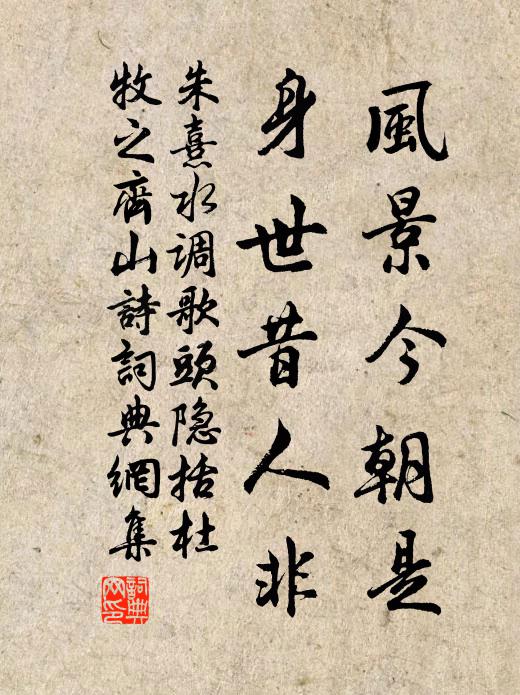 風景今朝是
身世昔人非
朱熹水调歌頭隐括杜
牧之齊山詩詞典網集
詞典網印